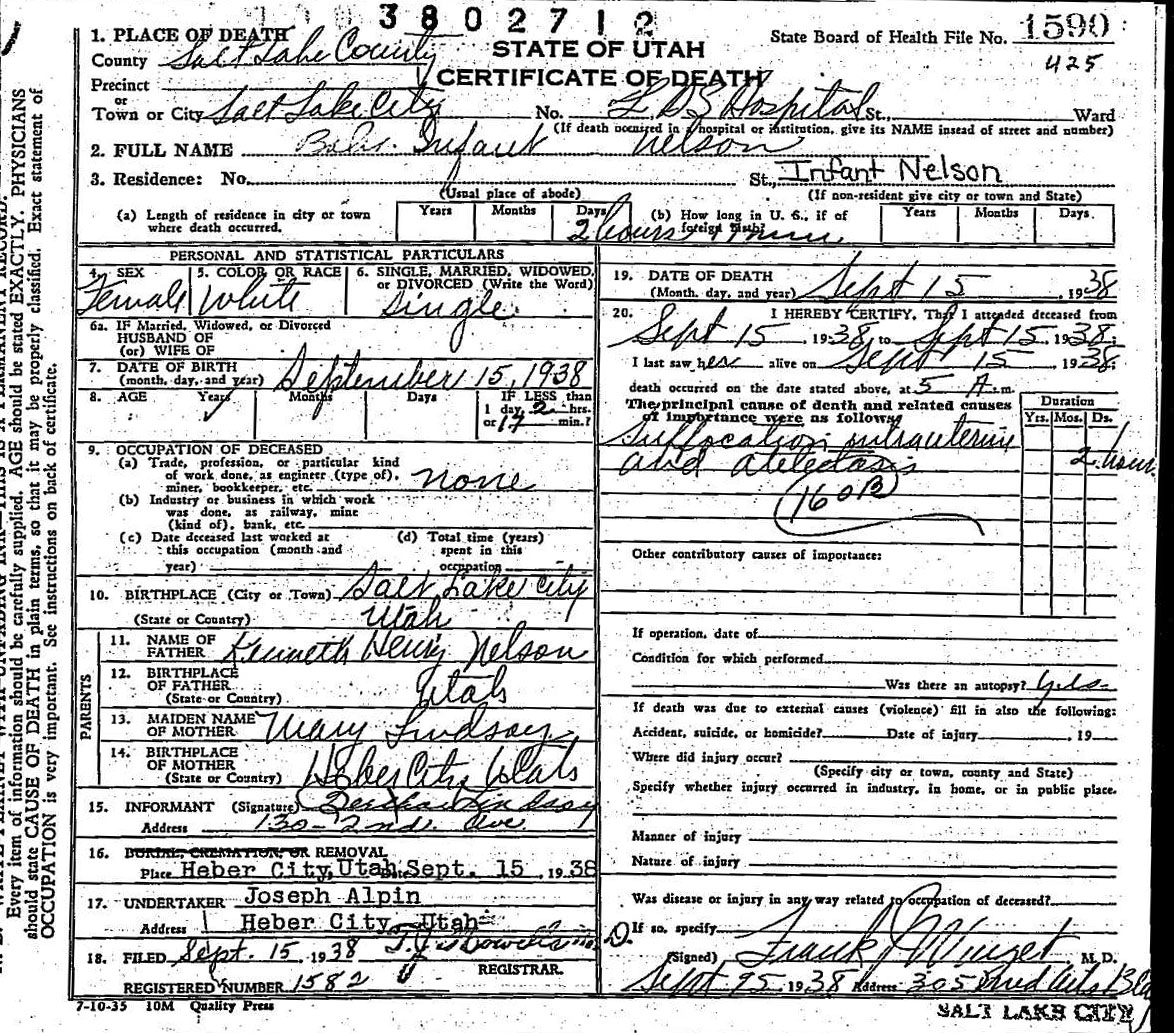 3802712
1. PLACE OF DEATH
County Salt Lake County
STATE OF UTAH
CERTIFICATE OF DEATH
State Board of Health File No. 1590
425
Precinct
or
Town or City Salt Lake City No. L D S Hospital St., Ward
(If death occured in a hospital or institution, give its NAME insead of street and number)
2. FULL NAME Infant Nelson
3. Residence: No. St., Infant Nelson
(Usual place of abode) (If non-resident give city or town and State)
(a) Length of residence in city or town where death occurred. Years Months Days 2 hours 17 min
(b) How long in U. S., if of foreign birth? Years Months Days.
PERSONAL AND STATISTICAL PARTICULARS
4. SEX 5. COLOR OR RACE 6. SINGLE, MARRIED, WIDOWED, or DIVORCED (Write the Word)
Female White Single
6a. IF Married, Widowed, or Divorced
HUSBAND OF
(or) WIFE OF
7. DATE OF BIRTH
(month, day, and year) September 15, 1938
8. AGE Years Months Days IF LESS than
1 day, 2 hrs.
or 17 min.?
9. OCCUPATION OF DECEASED
(a) Trade, profession, or particular kind
of work done, as engineer (type of),
miner, bookkeeper, etc. none
(b) Industry or business in which work
was done, as railway, mine
(kind of), bank, etc.
(c) Date deceased last worked at
this occupation (month and
year)
(d) Total time (years)
spent in this
occupation
10. BIRTHPLACE (City or Town) Salt Lake City
(State or Country) Utah
PARENTS
11. NAME OF
FATHER Kenneth Henry Nelson
12. BIRTHPLACE
OF FATHER
(State or Country) Utah
13. MAIDEN NAME
OF MOTHER Mary Lindsay
14. BIRTHPLACE
OF MOTHER
(State or Country) Heber City, Utah
15. INFORMANT (Signature) Lindsay
Address 130 - 2nd. Ave.
16. BURIAL, CREMATION, OR REMOVAL
Place Heber City, Utah Date Sept. 15, 1938
17. UNDERTAKER Joseph Alpin
Address Heber City, Utah
18. FILED Sept. 15, 1938
REGISTRAR.
REGISTERED NUMBER 1582
7-10-35 10M Quality Press
19. DATE OF DEATH
(Month, day, and year) Sept 15, 1938
20. I HEREBY CERTIFY, That I attended deceased from
Sept 15, 1938, to Sept 15, 1938.
I last saw her alive on Sept 15 1938.
death occurred on the date stated above, at 5 A.m.
The principal cause of death and related causes
of importance were as follows: Duration
Yrs. Mos. Ds.
Suffocation, intrauterine
and atelectasis 2 hours
160B
Other contributory causes of importance:
If operation, date of
Condition for which performed
Was there an autopsy? Yes
If death was due to external causes (violence) fill in also the following:
Accident, suicide, or homicide? Date of injury , 19
Where did injury occur?
(Specify city or town, county and State)
Specify whether injury occurred in industry, in home, or in public place.
Manner of injury
Nature of injury
Was disease or injury in any way related to occupation of deceased?
If so, specify
(Signed) Frank J Winget M. D.
Sept 1938 Address 305 Med Arts
SALT LAKE CITY
Every item of information should be carefully supplied. AGE should be stated EXACTLY. PHYSICIANS
should state CAUSE OF DEATH in plain terms, so that it may be properly classified. Exact statement of
OCCUPATION is very important. See instructions on back of certificate.